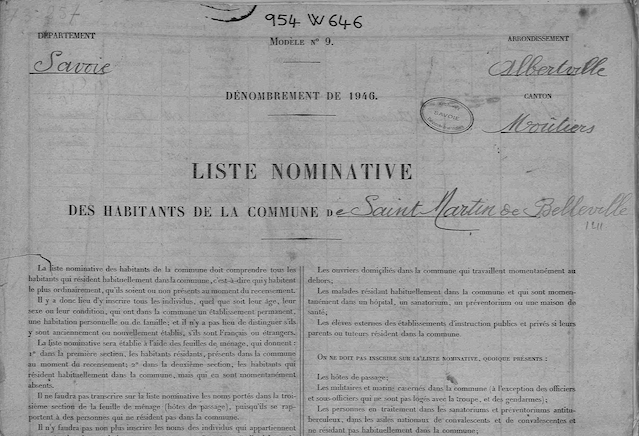 954 W 646
DÉPARTEMENT
Savoie
MODÈLE N° 9.
DÉNOMBREMENT DE 1946.
ARRONDISSEMENT
Albertville
CANTON
Moûtiers
SAVOIE
LISTE NOMINATIVE
DES HABITANTS DE LA COMMUNE De Saint Martin de Belleville
1211
La liste nominative des habitants de la commune doit comprendre tous les
habitants qui résident habituellement dans la commune, c'est-à-dire qui y habitent
le plus ordinairement, qu'ils soient ou non présents au moment du recensement.
Il y a donc lieu d'y inscrire tous les individus, quel que soit leur âge, leur
sexe ou leur condition, qui ont dans la commune un établissement permanent,
une habitation personnelle ou de famille; et il n'y a pas lieu de distinguer s'ils
y sont anciennement ou nouvellement établis, s'ils sont Français ou étrangers.
La liste nominative sera établie à l'aide des feuilles de ménage, qui donnent :
1° dans la première section, les habitants résidants, présents dans la commune
au moment du recensement; 2° dans la deuxième section, les habitants qui
résident habituellement dans la commune, mais qui en sont momentanément
absents.
Il ne faudra pas transcrire sur la liste nominative les noms portés dans la troi-
sième section de la feuille de ménage (hôtes de passage), puisqu'ils se rap-
portent à des personnes qui ne résident pas dans la commune.
Il n'y faudra pas non plus inscrire les noms des individus qui appartiennent
Les ouvriers domiciliés dans la commune qui travaillent momentanément au
dehors;
Les malades résidant habituellement dans la commune et qui sont momen-
tanément dans un hôpital, un sanatorium, un préventorium ou une maison de
santé;
Les élèves externes des établissements d'instruction publics et privés si leurs
parents ou tuteurs résident dans la commune.
ON NE DOIT PAS INSCRIRE SUR LA LISTE NOMINATIVE, QUOIQUE PRÉSENTS :
Les hôtes de passage;
Les militaires et marins casernés dans la commune (à l'exception des officiers
et sous-officiers qui ne sont pas logés avec la troupe, et des gendarmes);
Les personnes en traitement dans les sanatoriums et préventoriums antitu-
berculeux, dans les asiles nationaux de convalescents et de convalescentes et
ne résidant pas habituellement dans la commune;